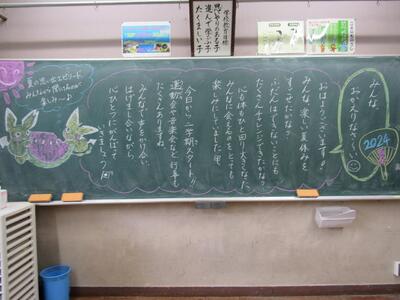 学校教育目標
思いやりのある子
進んで学ぶ子
たくましい子
みんな、
おかえりなさーい
2024
おはようございます！
みんな、楽しい夏休みを
すごせたかな？
ふだんはできないことにも
たくさんチャレンジできたかな？
心も体も大きくなった
みんなに会えるのをとても
楽しみにしていました。
今日から二学期スタート!!
運動会や音楽会など行事も
たくさんありますね。
みんなで声をかけ合い、
はげまし合いながら
心ひとつにがんばって
いきましょう
夏の思い出エピソード
みんなから聞けるのが
楽しみ〜♪